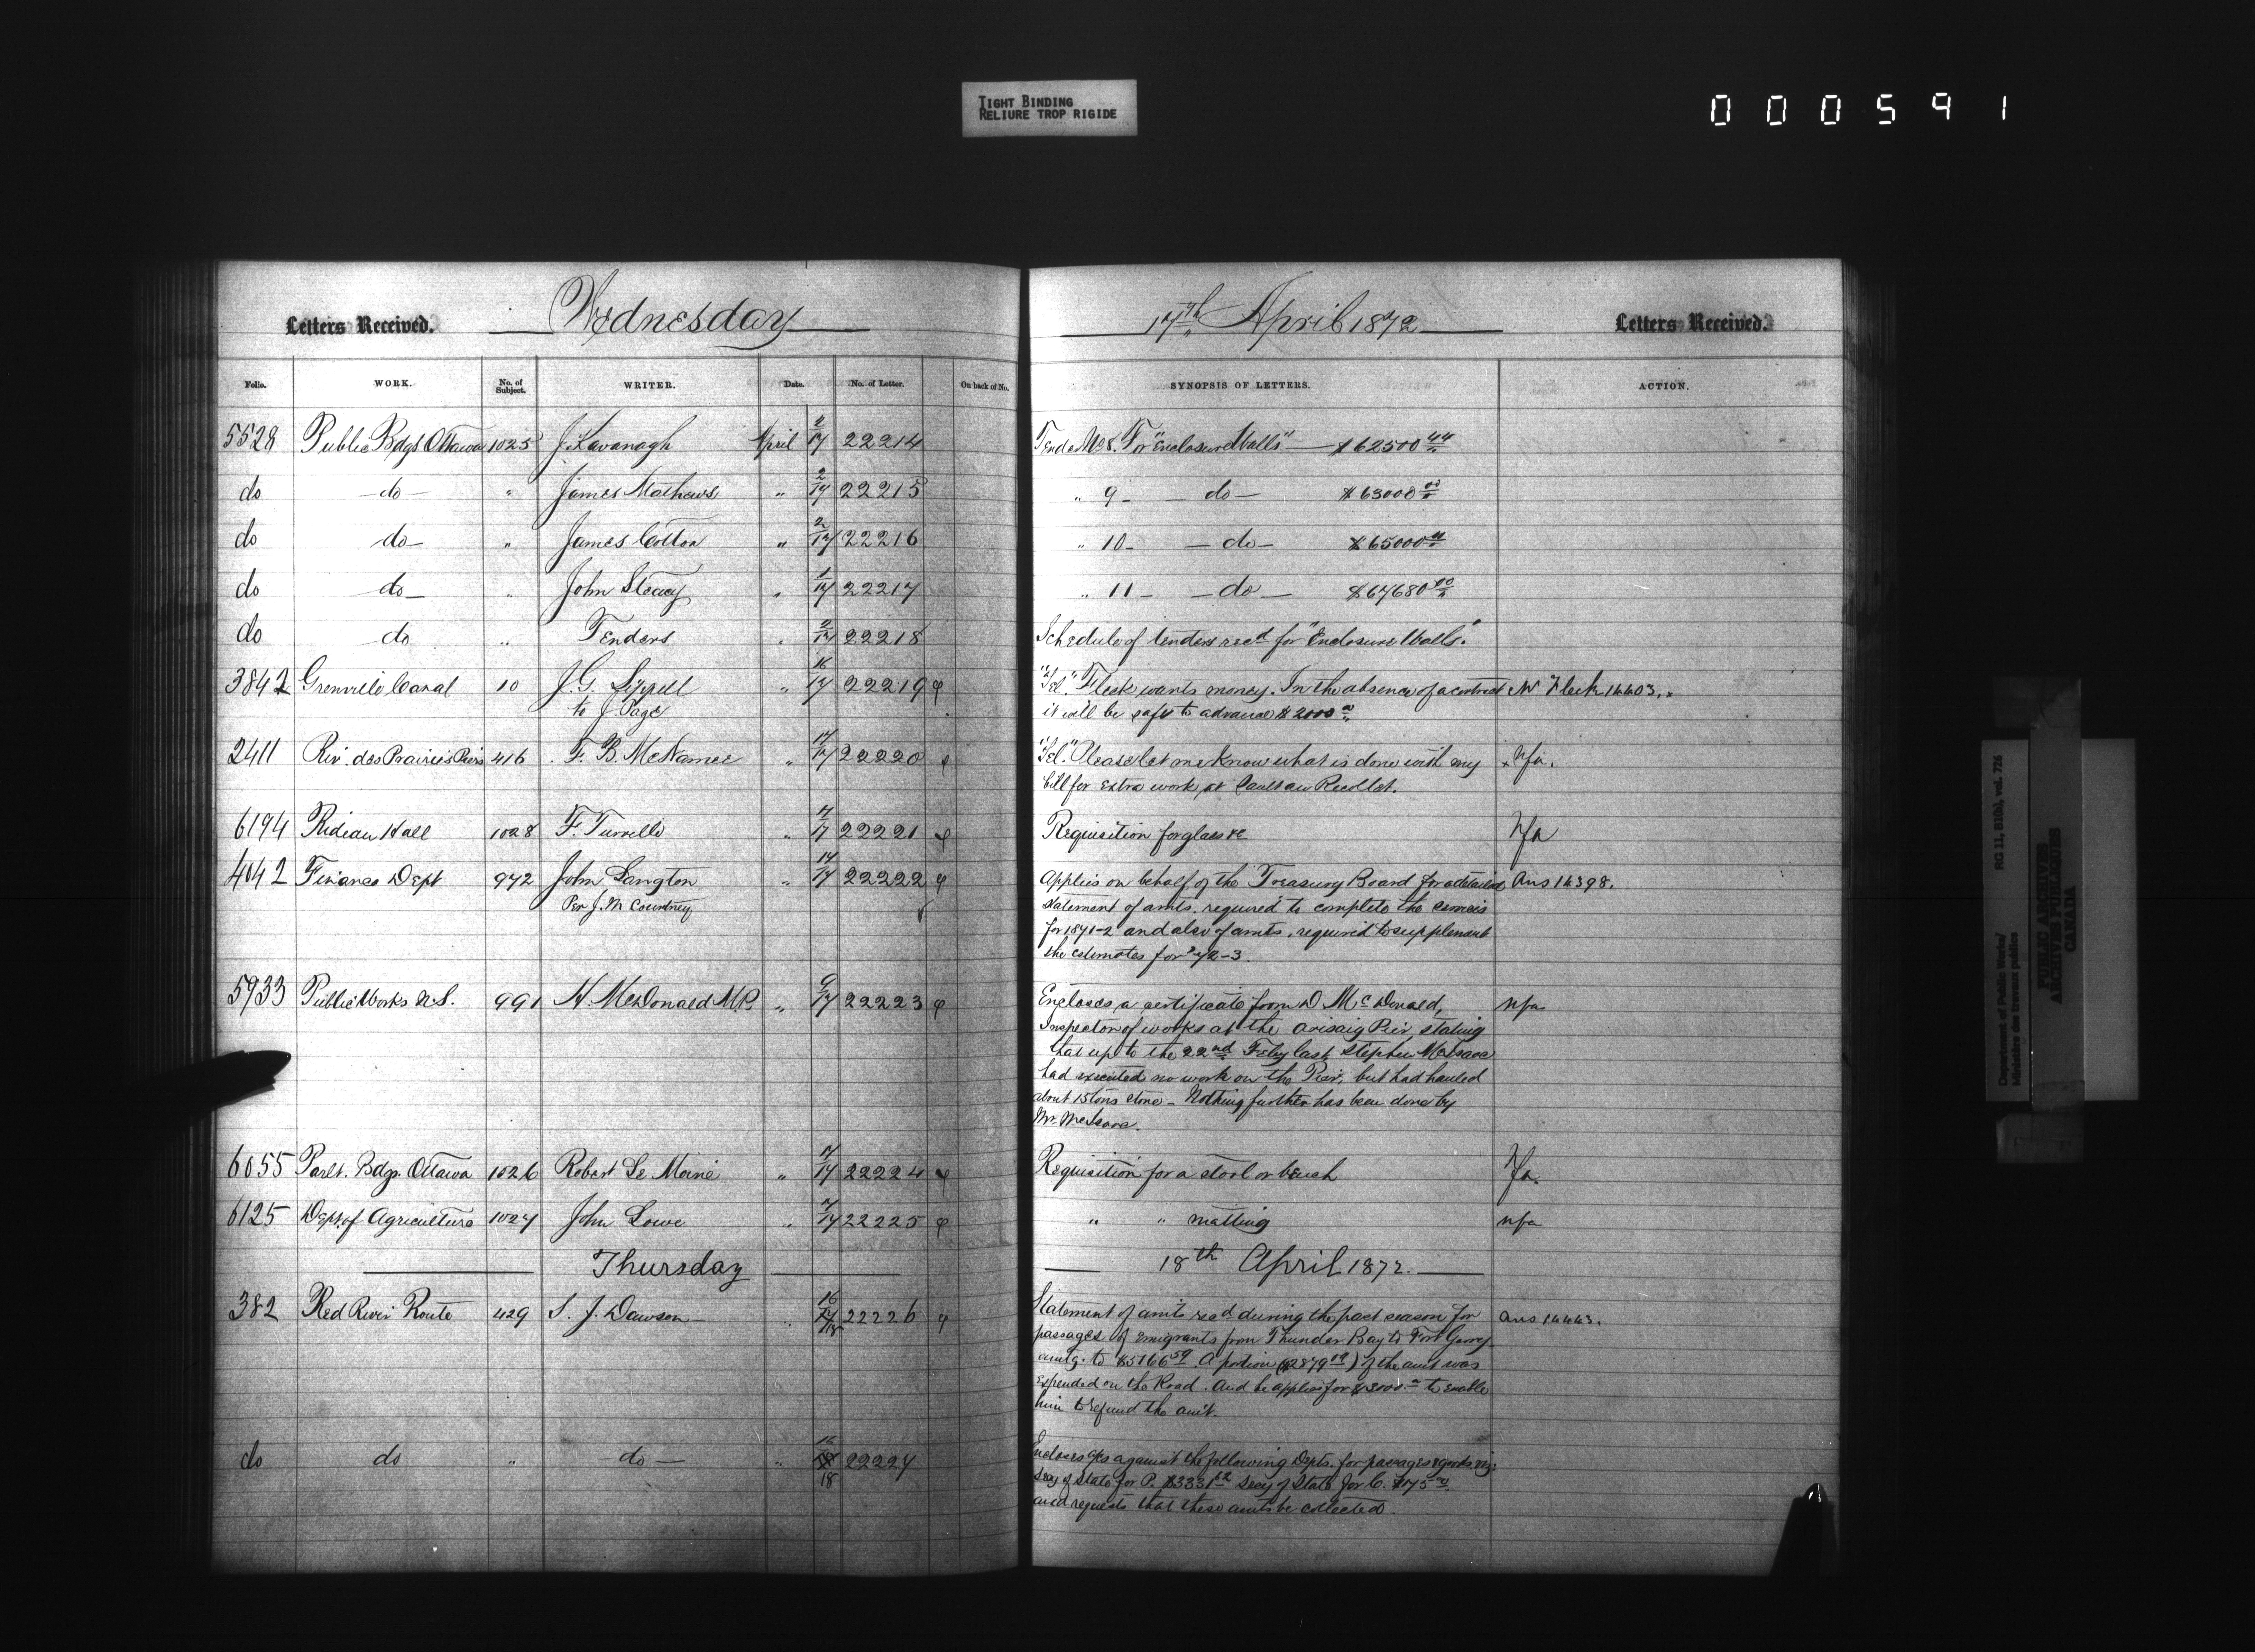 TIGHT BINDING
RELIURE TROP RIGIDE
000591
Letters Received.
Wednesday
17th April 1872
Letters Received.
Folio. WORK. No. of Subject. WRITER. Date. No. of Letter. On back of No. SYNOPSIS OF LETTERS. ACTION.
5528 Public Bdgs Ottawa 1025 J. Kavanagh April 2/17 22214 Tender No 8. For "Enclosure Walls" $62500 44
do do " James Mathews " 2/17 22215 " 9 do $63000 00
do do " James Cotton " 2/17 22216 " 10 do $65000
do do " John Steacy " 1/17 22217 " 11 do $67680 00
do do " Tenders " 2/17 22218 Schedule of tenders recd for "Enclosure Walls".
3842 Grenville Canal 10 J. G. Sippell " 16/17 22219 "Tel." Fleck wants money. In the absence of a contract Mr Fleck 14403.
to J. Page it will be safe to advance $2000
2411 Riv. des Prairies Piers 416 F. B. McNamee " 17/17 22220 "Tel." Please let me know what is done with my Nfa.
bill for extra work at Caultau Recollet.
6194 Rideau Hall 1028 F. Turville " 22221 Requisition for glass &c Nfa
4042 Finance Dept 972 John Langton " 17/17 22222 Applies on behalf of the Treasury Board for a detailed Ans 14398.
Per J. M Courtney statement of amts. required to complete the services
for 1871-2 and also of amts. required to supplement
the estimates for '72-3.
5933 Public Works N.S. 991 H. McDonald M.P. " 9/17 22223 Encloses a certificate from D. McDonald, nfa
Inspector of works at the Arisaig Pier, stating
that up to the 22nd Feby last, Stephen McIsaac
had executed no work on the Pier, but had hauled
about 15 tons stone - Nothing further has been done by
Mr. McIsaac.
6055 Parlt. Bdgs. Ottawa 1026 Robert Le Moine " 22224 Requisition for a stool or bench Nfa.
6125 Dept. of Agriculture 1027 John Lowe " 22225 " " matting nfa
Thursday 18th April 1872.
382 Red River Route 429 S. J. Dawson " 16/18 22226 Statement of amts recd during the past season for ans 14443.
passages of Emigrants from Thunder Bay to Fort Garry
amtg. to $5166 59. A portion ($2879 19) of the amt was
expended on the Road. And he applies for $3000 to enable
him to refund the amt.
do do " do " 16/18 22227 Encloses a/cs against the following Depts. for passages & goods viz:
Secy of State for P. $3331 52 Secy of State for C. $175
and requests that these amts be collected.
Department of Public Works/ RG 11, B1(b), vol. 726
Ministère des travaux publics
PUBLIC ARCHIVES
ARCHIVES PUBLIQUES
CANADA